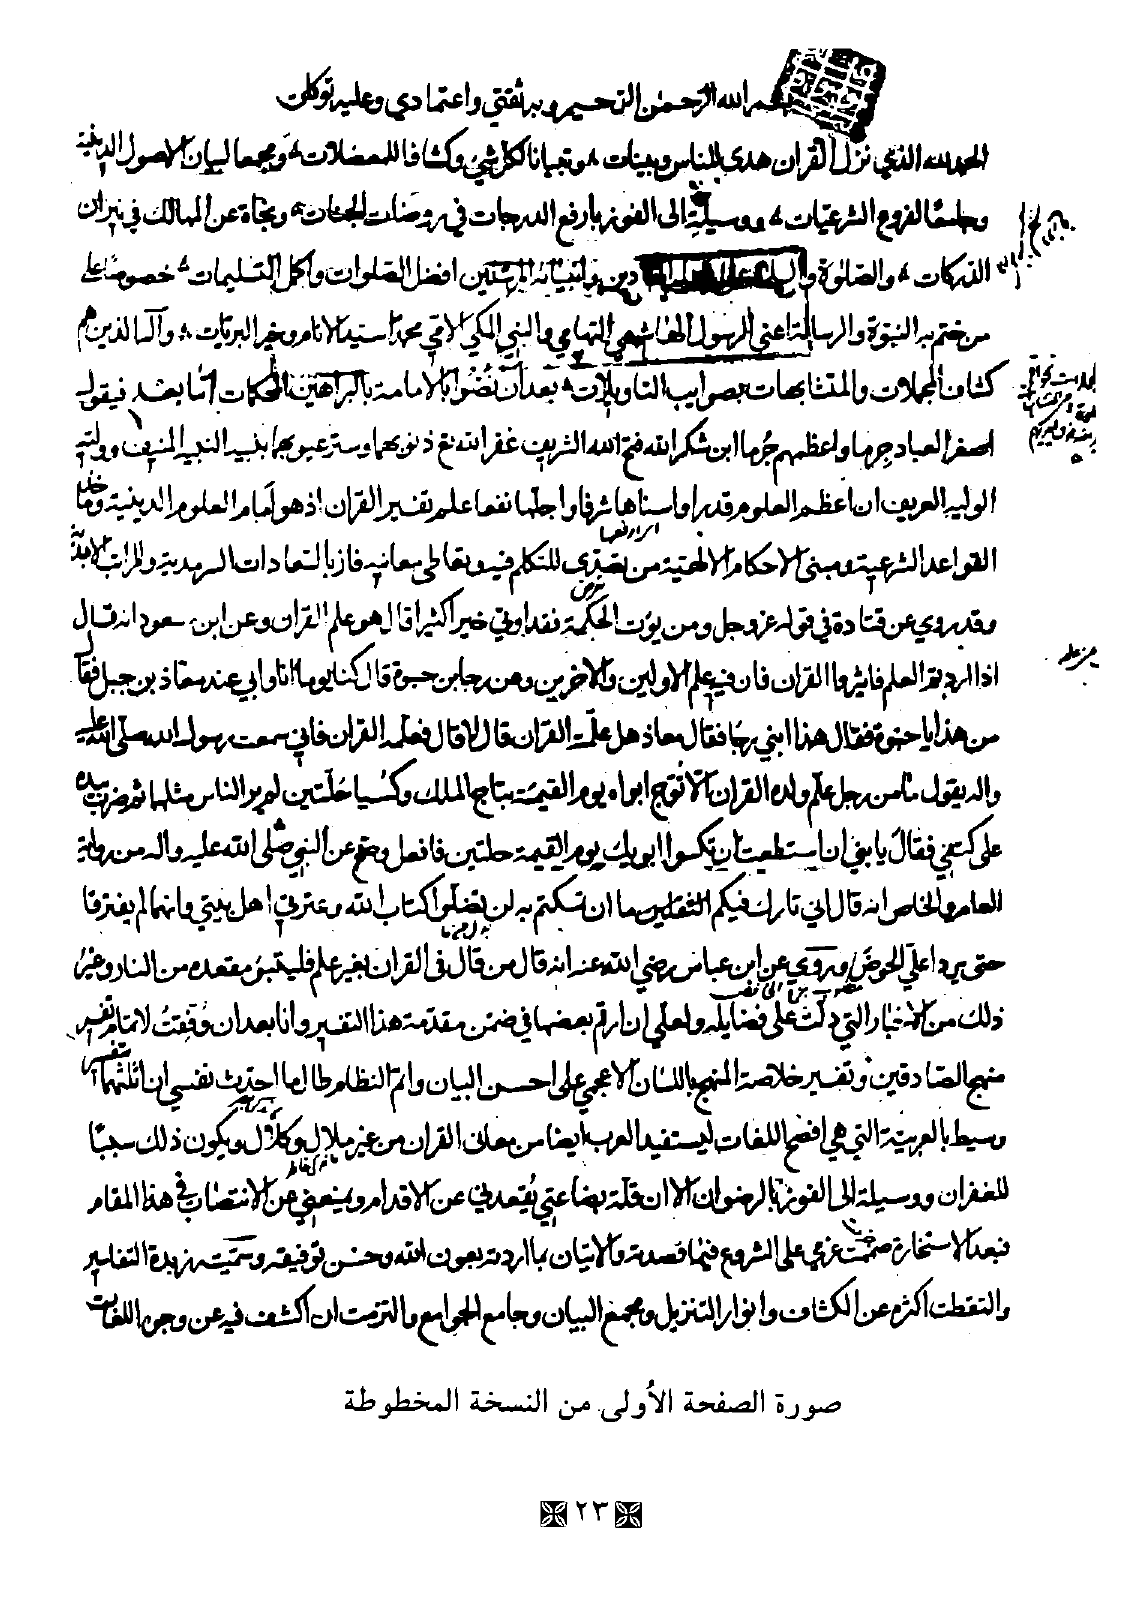 بسم الله الرحمن الرحيم وبه ثقتي واعتمادي وعليه توكلت
الحمد لله الذي نزل القران هدى للناس وبينات وتبيانا لكل شئ وكشافا للمعضلات ومجمعا لبيان الاصول الدينية
وجامعا لفروع الشرعيات ووسيلة الى الفوز بارفع الدرجات في روضات الجنات ونجاة عن المهالك في نيران
الدركات والصلوة والسلام على وانبيائه المرسلين افضل الصلوات واكمل التسليمات خصوصا على
من ختم به النبوة والرسالة اعني الرسول الهاشمي التهامي والنبي المكي الامي محمد سيد الانام وخير البريات وآله الذين هم
كشاف المجملات والمتشابهات بصوايب التاويلات بعد ان نُصّوا بالامامة بالبراهين المحكمات اما بعد فيقول
اصغر العباد جِرما واعظمهم جُرما ابن شكر الله فتح الله الشريف غفر الله تع ذنوبهما وستر عيوبهما بنبيه النبيه المنيف ووليه
الوليه العريف ان اعظم العلوم قدرا واسناها شرفا واجلها نفعا علم تفسير القران اذ هو امام العلوم الدينية وماخذ
القواعد الشرعية ومبنى الاحكام الالهية من تصدى للتكلم فيه وتعاطى معانيه فاز بالسعادات السرمدية والمراتب الابدية
وقد روي عن قتادة في قوله عز وجل ومن يؤت الحكمة فقد اوتي خيرا كثيرا قال هو علم القران وعن ابن مسعود انه قال
اذا اردتم العلم فاثيروا القران فان فيه علم الاولين والاخرين وعن رجا بن حيوة قال كنا يوما انا وابي عند معاذ بن جبل فقال
من هذا يا حيوة فقال هذا ابني رجا فقال معاذ هل علمته القران قال لا قال فعلمه القران فاني سمعت رسول الله صلى الله عليه
واله يقول ما من رجل علّم ولده القران الا توّج ابواه يوم القيمة بتاج الملك وكسيا حلّتين لم ير الناس مثلهما ثم ضرب بيده
على كتفي فقال يا بني ان استطعت ان تكسوا ابويك يوم القيمة حلتين فافعل وصح عن النبي صلى الله عليه واله من رواية
العام والخاص انه قال اني تارك فيكم الثقلين ما ان تمسكتم به لن تضلوا كتاب الله وعترتي اهل بيتي وانهما لم يفترقا
حتى يردا علي الحوض وروي عن ابن عباس رضي الله عنه انه قال من قال في القران بغير علم فليتبوء مقعده من النار وغير
ذلك من الاخبار التي دلت على فضايله ولعلي ان ارقم بعضها في ضمن مقدمة هذا التفسير وانا بعد ان وُفّقتُ لاتمام تفسير
منهج الصادقين وتفسير خلاصة المنهج باللسان الاعجمي على احسن البيان واتم النظام طال ما احدث نفسي ان اثلثهما بتفسير
وسيط بالعربية التي هي افصح اللغات ليستفيد العرب ايضا من معاني القران من غير ملال وكلال ويكون ذلك سببا
للغفران ووسيلة الى الفوز بالرضوان الا ان قلة بضاعتي يُقعدني عن الاقدام ويمنعني عن الانتصاب في هذا المقام
فبعد الاستخارة صممت عزمي على الشروع فيما قصدته والاتيان بما اردته بعون الله وحسن توفيقه وسميته بزبدة التفاسير
والتقطت اكثره عن الكشاف وانوار التنزيل ومجمع البيان وجامع الجوامع والتزمت ان اكشف فيه عن وجوه اللغات
صورة الصفحة الأولى من النسخة المخطوطة
٢٣